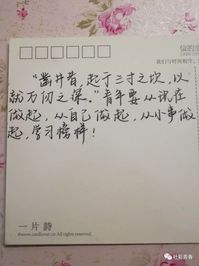 我们与时间相守,
“凿井者，起于三寸之坎，以
就万仞之深。”青年要从现在
做起，从自己做起，从小事做
起，学习榜样！
一片詩
All rights reserved.
社彩青春